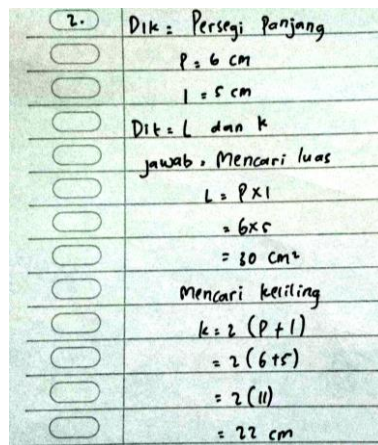 2. Dik = Persegi Panjang
P = 6 cm
l = 5 cm
Dit = L dan k
jawab = Mencari luas
L = P x l
= 6x5
= 30 cm²
Mencari keliling
k = 2 (P + l)
= 2 (6+5)
= 2 (11)
= 22 cm